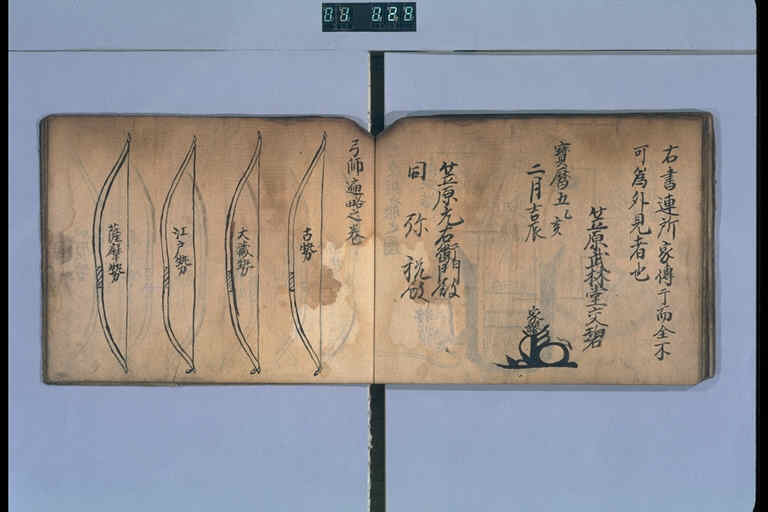 右書連所家傳于而全不
可為外見者也
笠原武林堂
寶暦五乙亥
二月吉辰
笠原元右衛門殿
同 弥
弓師遍略之巻
古勢
大蔵勢
江戸勢
薩摩勢